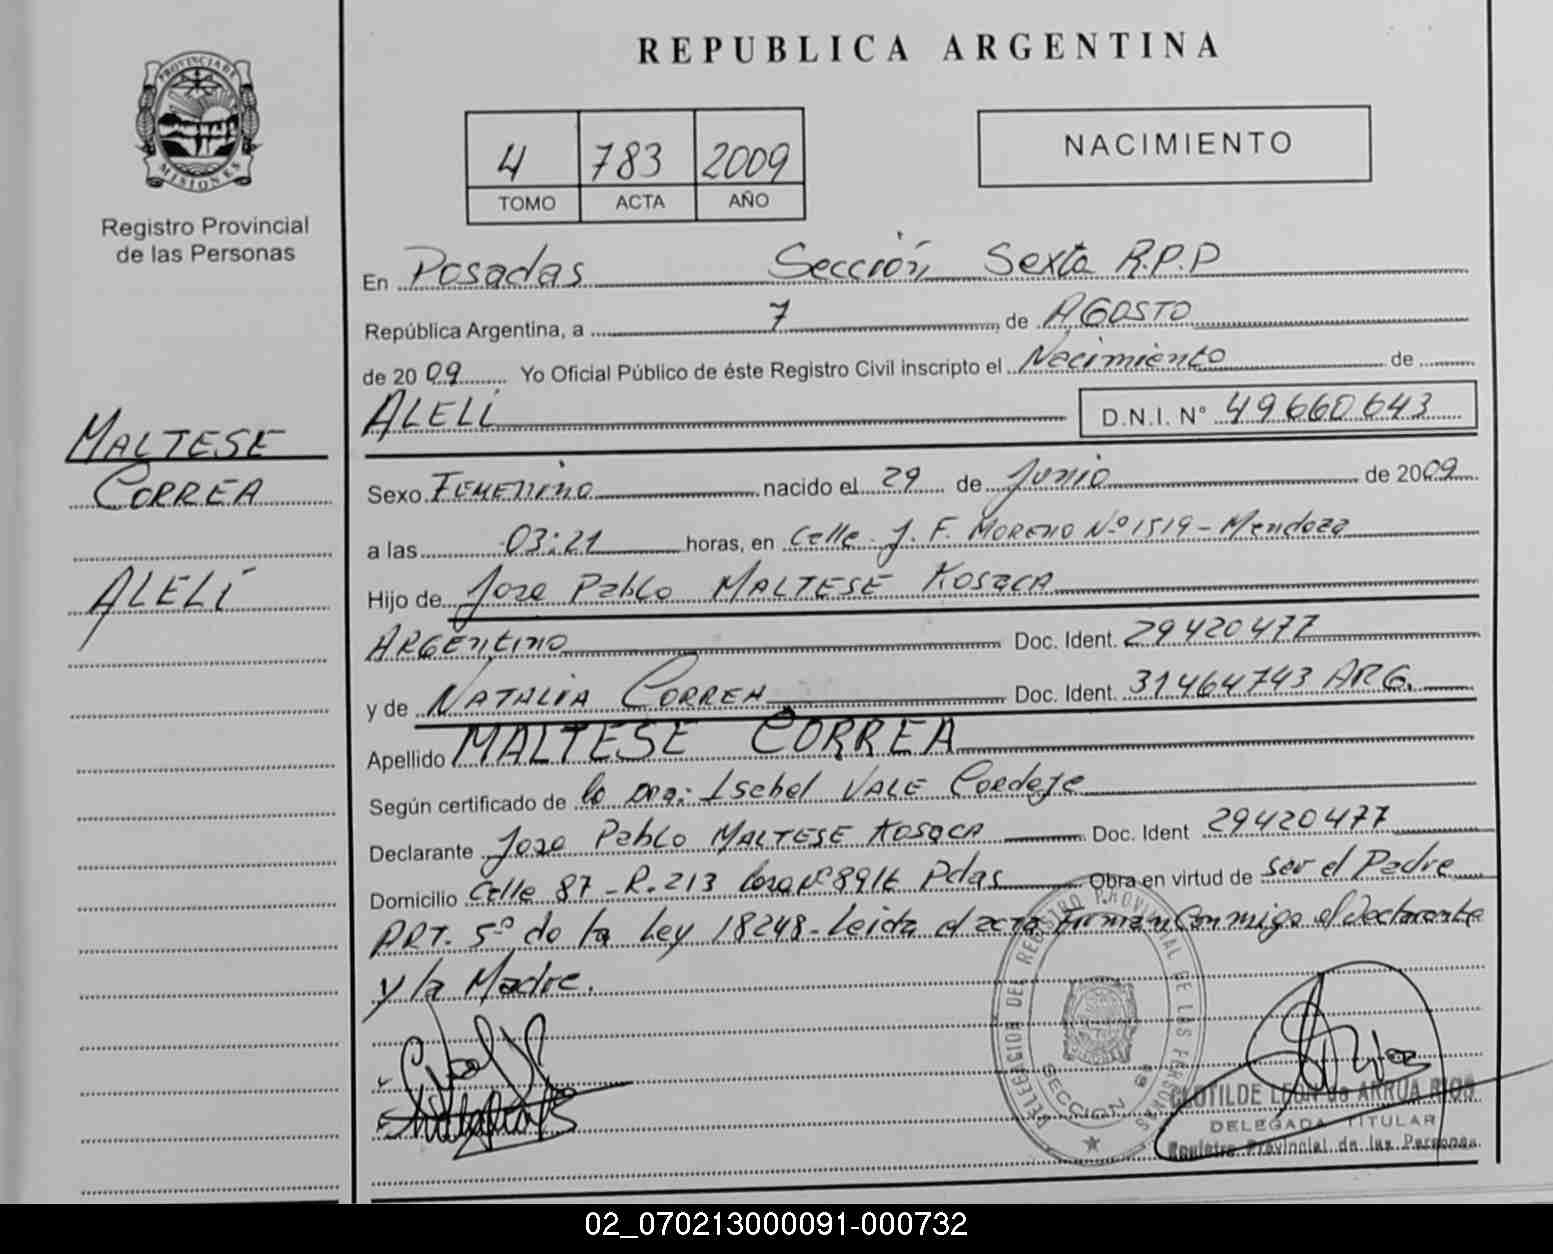 REPUBLICA ARGENTINA
PROVINCIA DE
MISIONES
Registro Provincial
de las Personas
4 783 2009
TOMO ACTA AÑO
NACIMIENTO
En Posadas Sección Sexta R.P.P
República Argentina, a 7 de AGOSTO
de 2009 Yo Oficial Público de éste Registro Civil inscripto el Nacimiento de
ALELÍ D.N.I. N° 49660643
MALTESE
CORREA
ALELÍ
Sexo Femenino nacido el 29 de Junio de 2009
a las 03:21 horas, en Calle J. F. MORENO Nº 1519 - Mendoza
Hijo de Jose Pablo MALTESE KOSACA
ARGENTINO Doc. Ident. 29420477
y de NATALIA CORREA Doc. Ident. 31464743 ARG.
Apellido MALTESE CORREA
Según certificado de la Dra: Isabel VALE
Declarante Jose Pablo MALTESE KOSACA Doc. Ident 29420477
Domicilio Calle 87 - R. 213 Casa Nº Pdas Obra en virtud de ser el Padre
ART. 5º de la Ley 18248 - Leida el acta Firman Conmigo el declarante
y la Madre.
DELEGACION DEL REGISTRO PROVINCIAL DE LAS PERSONAS
SECCION 6ª
CLOTILDE LEON de ARRUA RIOS
DELEGADA TITULAR
Registro Provincial de las Personas
02_070213000091-000732